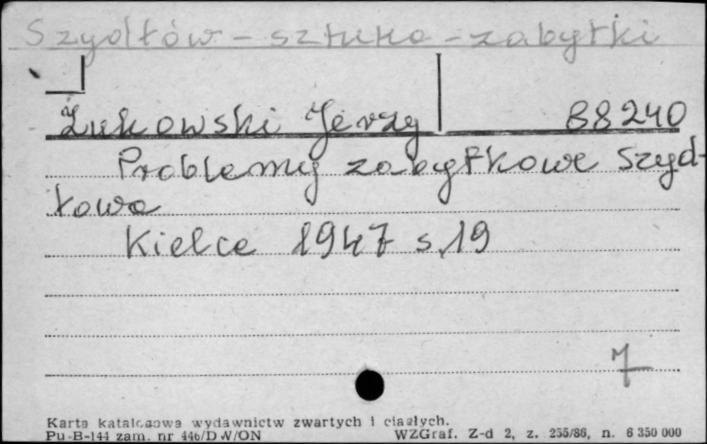 Szydłów - sztuka - zabytki
Żukowski Jerzy 88240
Problemy zabytkowe Szyd-
łowa
Kielce 1947 s. 19
Karta katalogowa wydawnictw zwartych i ciągłych.
Pu-B-144 zam. nr 446/DW/ON WZGraf. Z-d 2, z. 255/86, n. 6 350 000